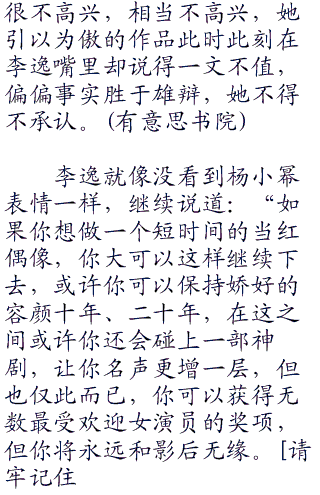 很不高兴，相当不高兴，她
引以为傲的作品此时此刻在
李逸嘴里却说得一文不值，
偏偏事实胜于雄辩，她不得
不承认。(有意思书院)
李逸就像没看到杨小幂
表情一样，继续说道：“如
果你想做一个短时间的当红
偶像，你大可以这样继续下
去，或许你可以保持娇好的
容颜十年、二十年，在这之
间或许你还会碰上一部神
剧，让你名声更增一层，但
也仅此而已，你可以获得无
数最受欢迎女演员的奖项，
但你将永远和影后无缘。[请
牢记住